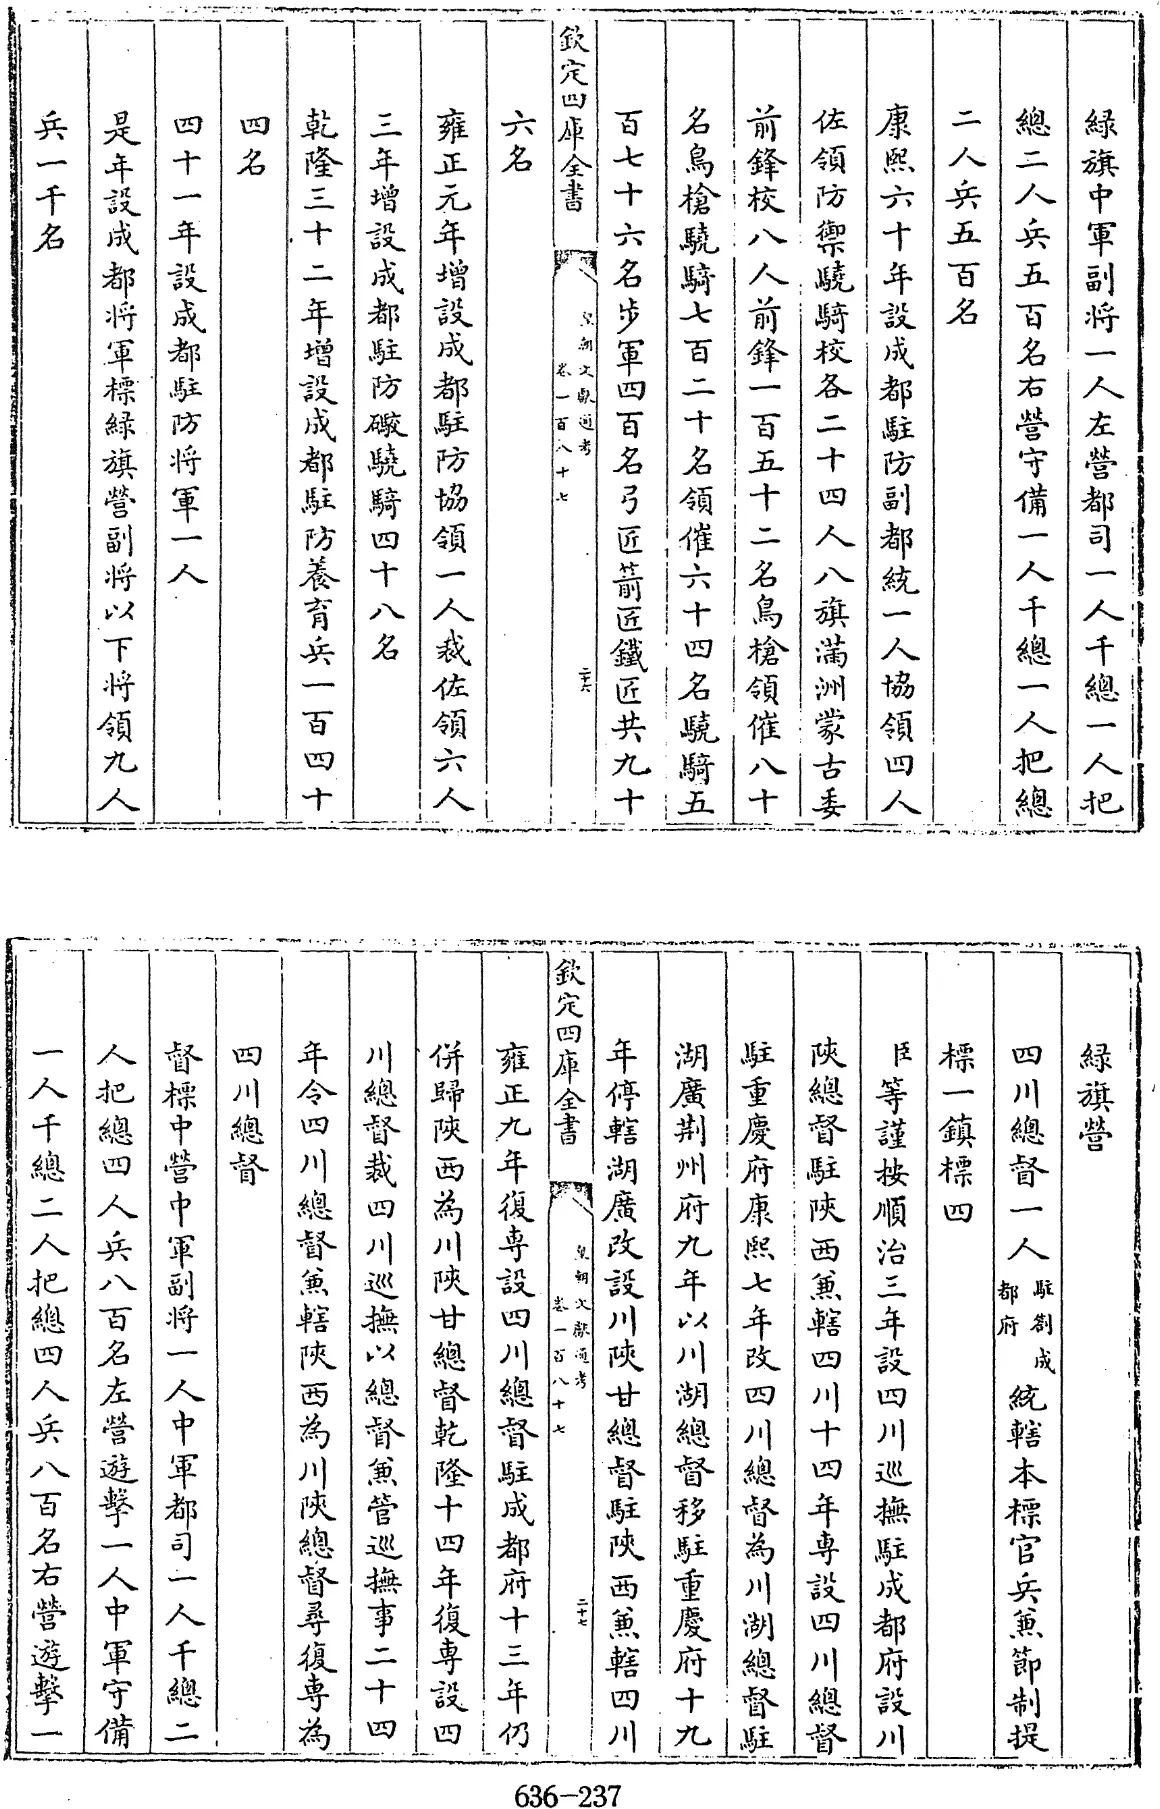 緑旗中軍副將一人左營都司一人千總一人把
總二人兵五百名右營守備一人千總一人把總
二人兵五百名
康熙六十年設成都駐防副都統一人協領四人
佐領防禦驍騎校各二十四人八旗滿洲蒙古委
前鋒校八人前鋒一百五十二名鳥槍領催八十
名鳥槍驍騎七百二十名領催六十四名驍騎五
百七十六名步軍四百名弓匠箭匠鐵匠共九十
欽定四庫全書
皇朝文獻通考
卷一百八十七
二十六
六名
雍正元年增設成都駐防協領一人裁佐領六人
三年增設成都駐防礮驍騎四十八名
乾隆三十二年增設成都駐防養育兵一百四十
四名
四十一年設成都駐防將軍一人
是年設成都將軍標緑旗營副將以下將領九人
兵一千名
緑旗營
四川總督一人駐劄成都府統轄本標官兵兼節制提
標一鎮標四
臣等謹按順治三年設四川巡撫駐成都府設川
陝總督駐陝西兼轄四川十四年專設四川總督
駐重慶府康熙七年改四川總督為川湖總督駐
湖廣荆州府九年以川湖總督移駐重慶府十九
年停轄湖廣改設川陝甘總督駐陝西兼轄四川
欽定四庫全書
皇朝文獻通考
卷一百八十七
二十七
雍正九年復専設四川總督駐成都府十三年仍
併歸陝西為川陝甘總督乾隆十四年復専設四
川總督裁四川巡撫以總督兼管巡撫事二十四
年令四川總督兼轄陝西為川陝總督尋復専為
四川總督
督標中營中軍副將一人中軍都司一人千總二
人把總四人兵八百名左營遊擊一人中軍守備
一人千總二人把總四人兵八百名右營遊擊一
636-237